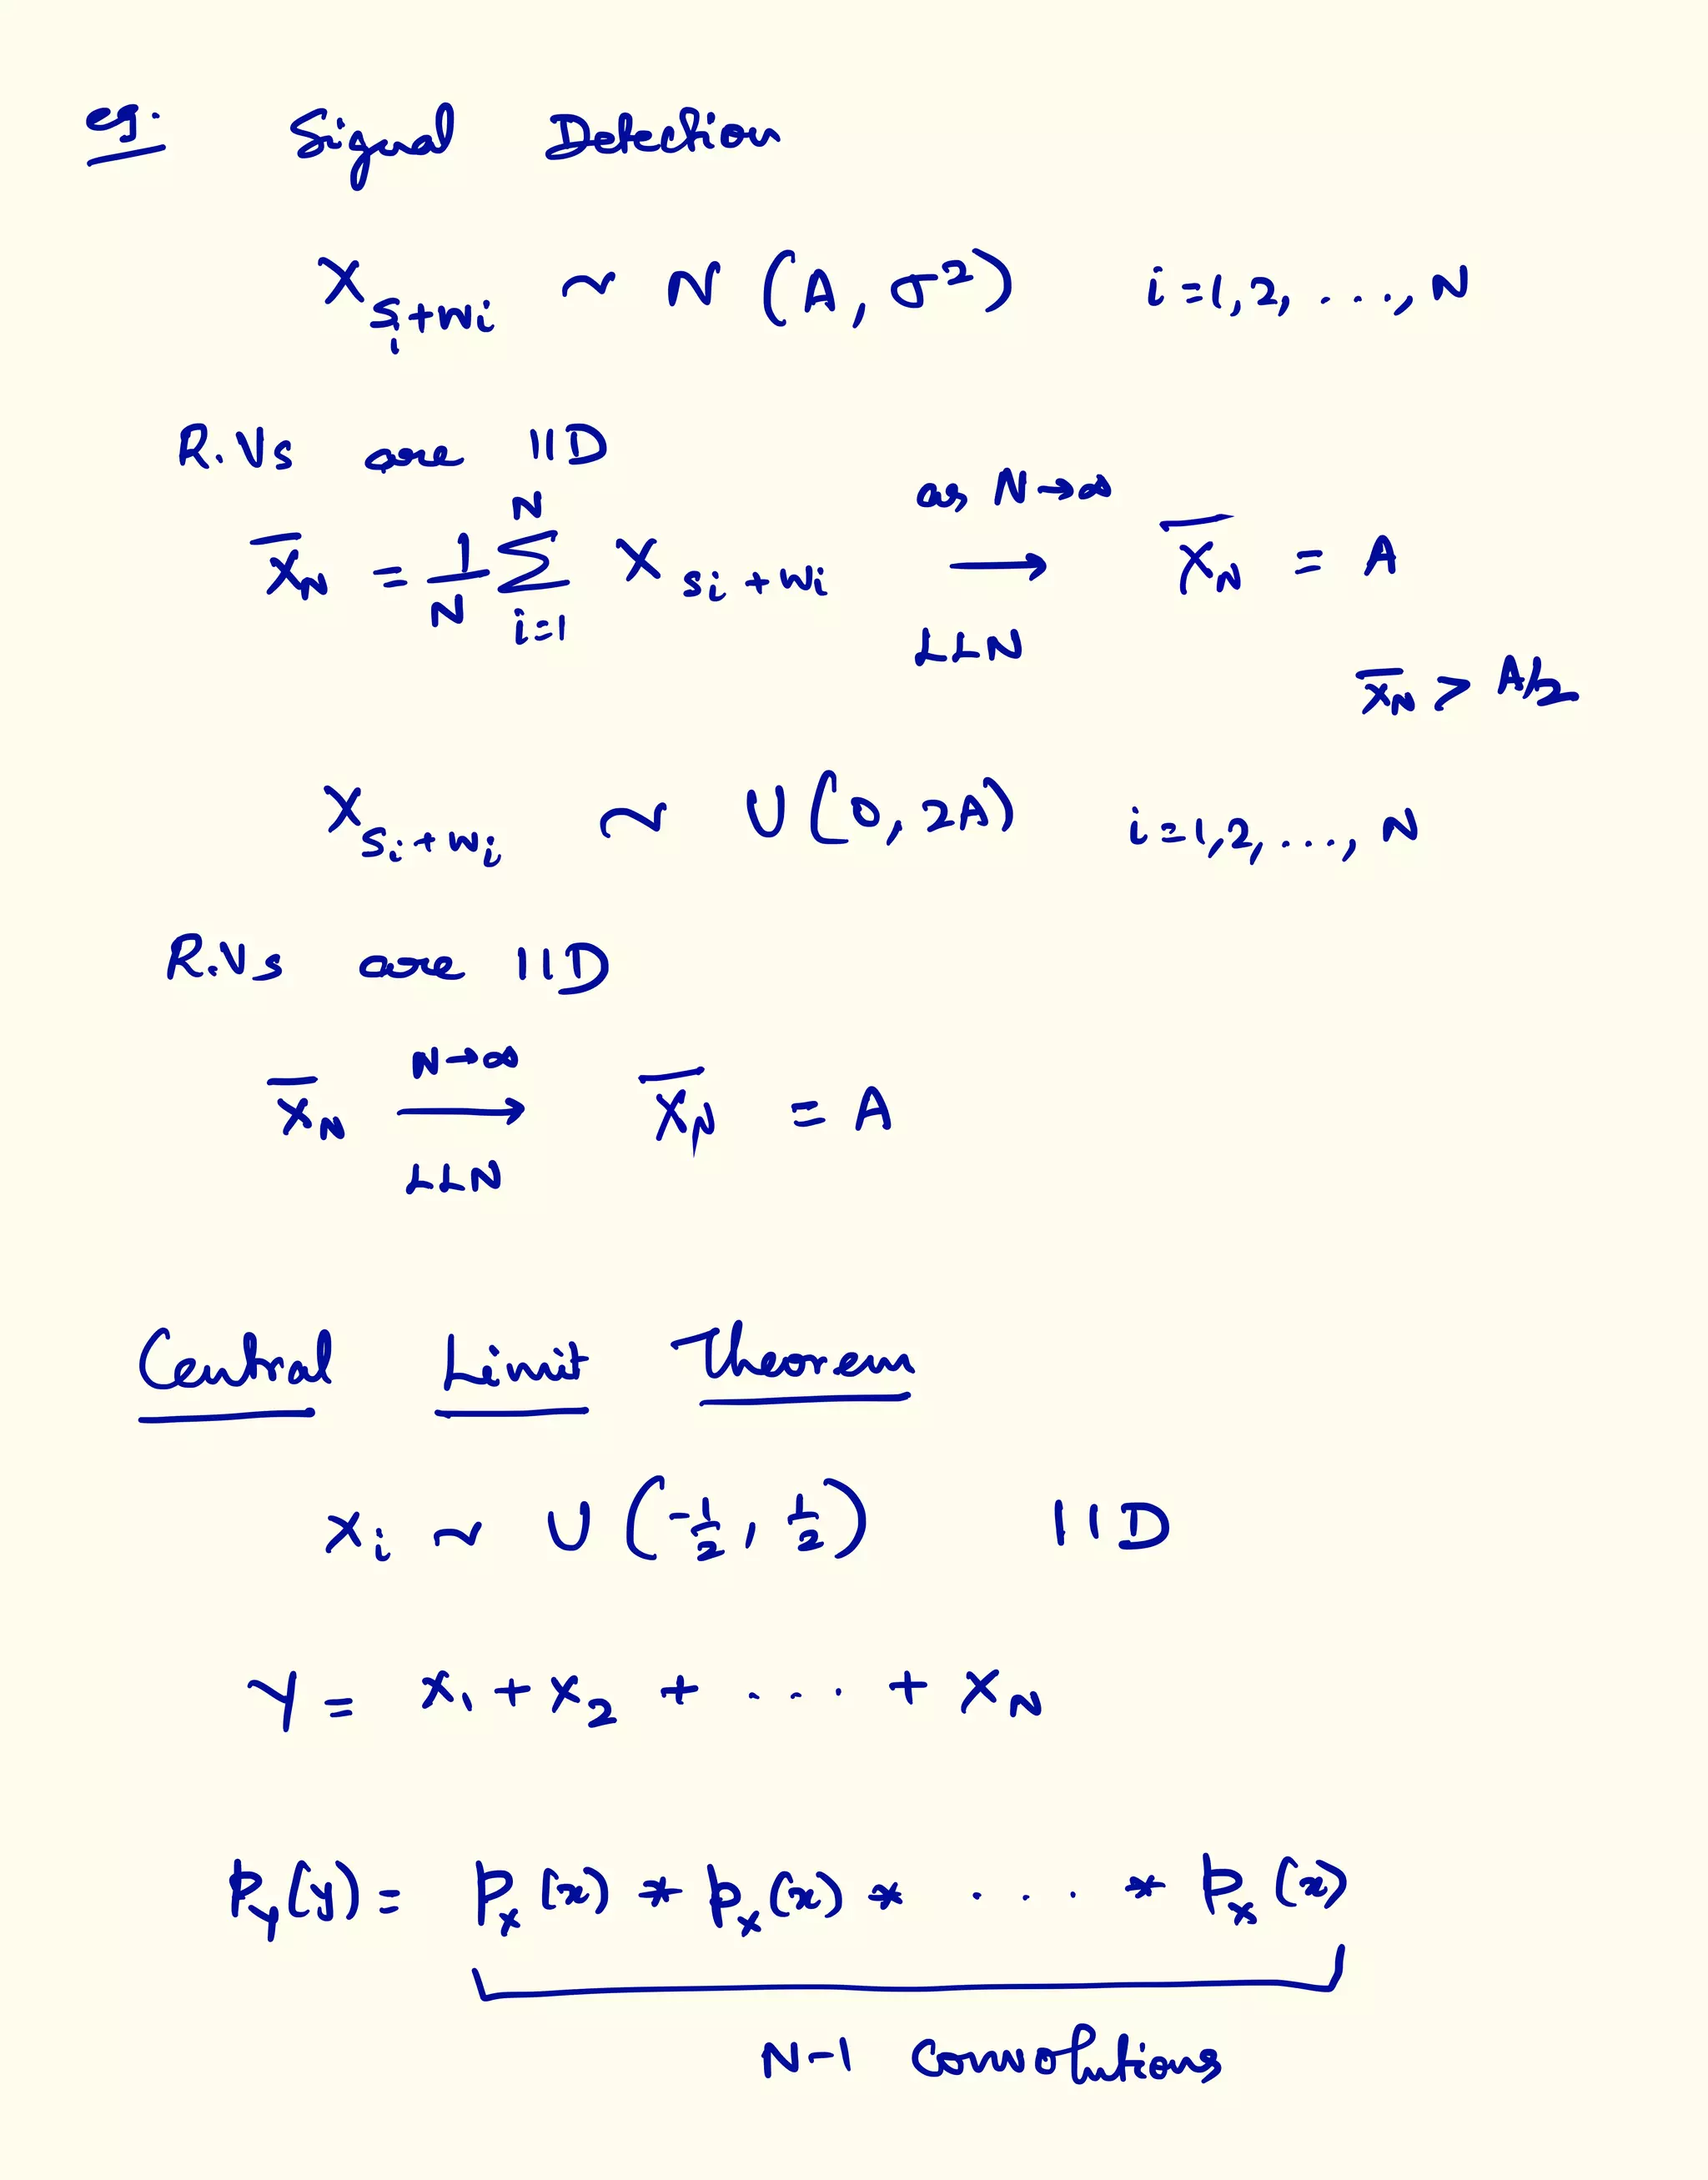 eg. Signal Detection
X_{s_i+w_i} ~ N (A, σ²) i=1,2, ..., N
R.Vs are IID
X̄_N = 1/N Σ_{i=1}^{N} X_{s_i+w_i} as N→∞ ⟶ LLN X̄_N = A
X̄_N > A/2
X_{s_i+w_i} ~ U(0, 2A) i=1,2, ..., N
R.Vs are IID
X̄_N N→∞ ⟶ LLN X̄_N = A
Central Limit Theorem
X_i ~ U (-1/2, 1/2) IID
Y = X_1 + X_2 + .... + X_N
p_Y(y) = p_X(x) * p_X(x) * .... * p_X(x)
N-1 Convolutions